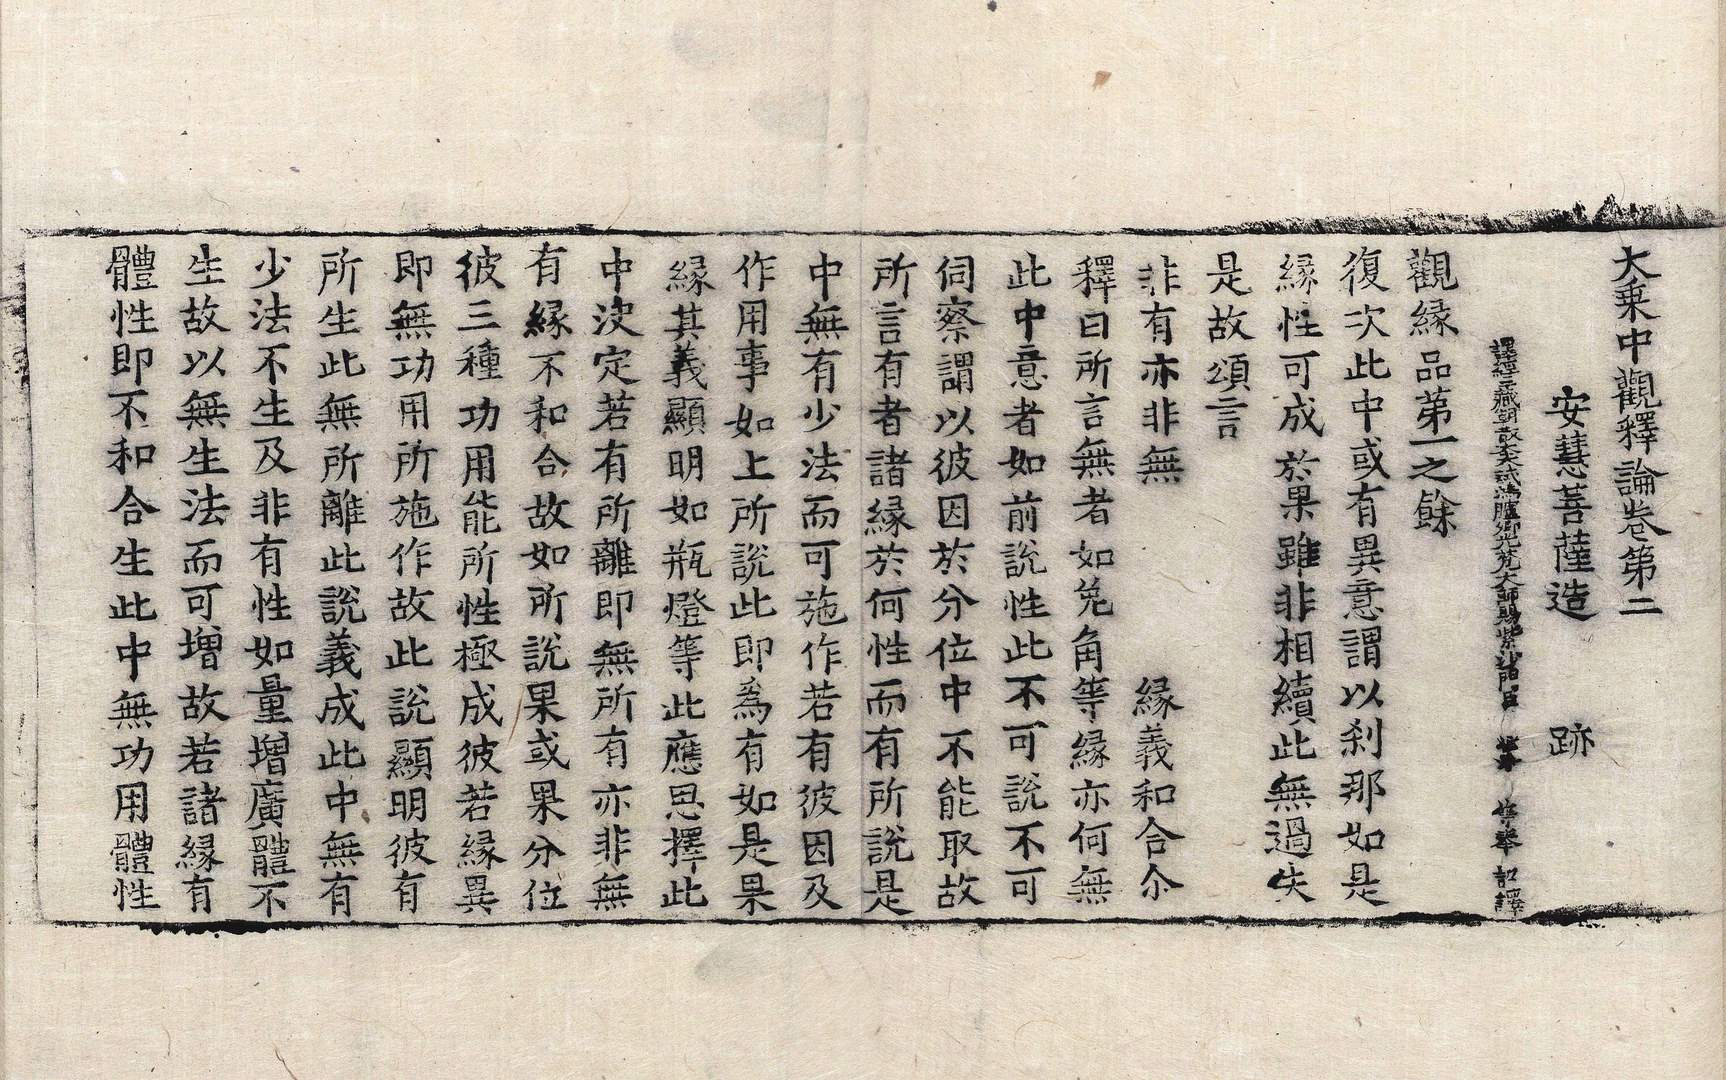 大乘中觀釋論卷第二
安慧菩薩造 跡
譯經三藏朝散大夫試鴻臚卿光梵大師賜紫沙門臣 惟淨 等奉 詔譯
觀緣品第一之餘
復次此中或有異意謂以刹那如是
緣性可成於果雖非相續此無過失
是故頌言
非有亦非無 緣義和合尒
釋曰所言無者如兔角等緣亦何無
此中意者如前說性此不可說不可
伺察謂以彼因於分位中不能取故
所言有者諸緣於何性而有所說是
中無有少法而可施作若有彼因及
作用事如上所說此即為有如是果
緣其義顯明如瓶燈等此應思擇此
中決定若有所離即無所有亦非無
有緣不和合故如所說果或果分位
彼三種功用能所性極成彼若緣異
即無功用所施作故此說顯明彼有
所生此無所離此說義成此中無有
少法不生及非有性如量增廣體不
生故以無生法而可增故若諸緣有
體性即不和合生此中無功用體性